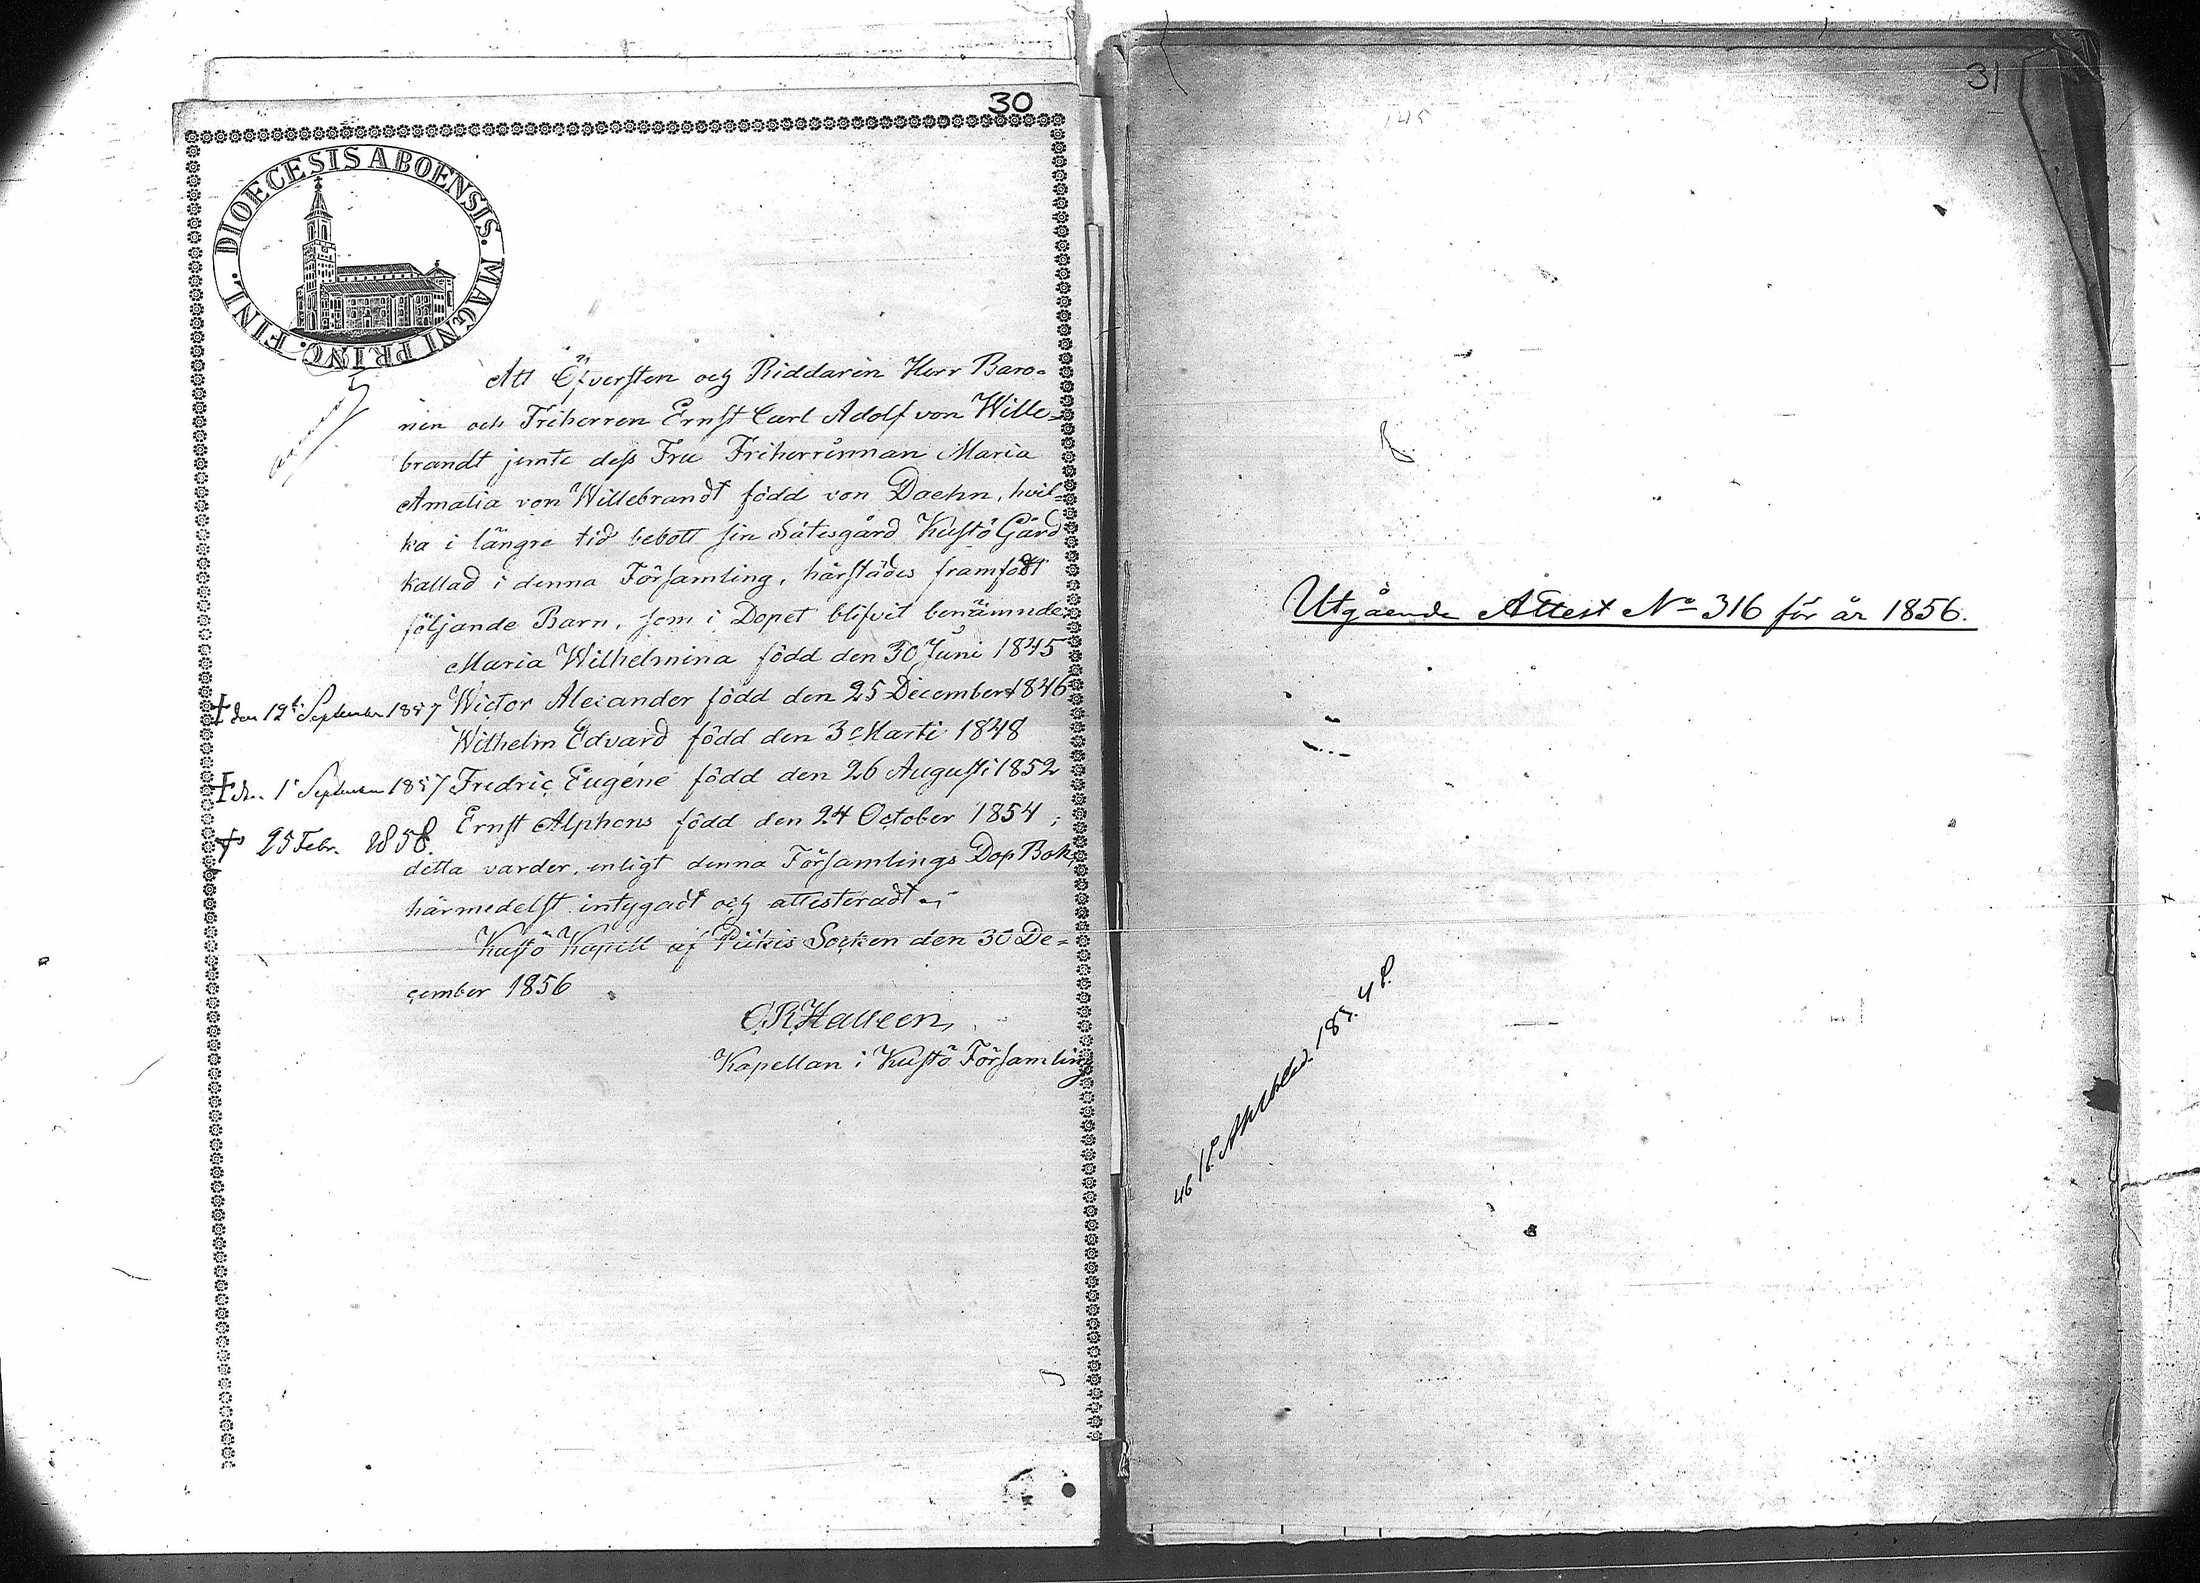 30
DIOECESIS ABOENSIS. MAGNI PRINC. FINL.
Att Öfversten och Riddaren Herr Baro=
nen och Friherren Ernst Carl Adolf von Wille=
brandt jemte dess Fru Friherrinnan Maria
Amalia von Willebrandt född von Daehn, hvil=
ka i längre tid bebott sin Sätesgård Kustö Gård
kallad i denna Församling, härstädes framfödt
följande Barn, som i Dopet blifvit benämnde:
Maria Wilhelmina född den 30 Juni 1845
† den 12te September 1857 Wictor Alexander född den 25 December 1846
Wilhelm Edvard född den 3 Marti 1848
† den 1 September 1857 Fredric Eugéne född den 26 Augusti 1852
Ernst Alphons född den 24 October 1854;
† 25 Febr. 1858.
detta varder, enligt denna Församlings Dop Bok,
härmedelst intygadt och attesteradt
Kustö Kapell af Pükis Socken den 30 De=
cember 1856
Kapellan i Kustö Församling
31
Utgående Attest No 316 för år 1856.